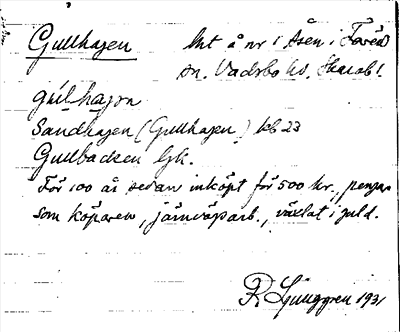 Gullhagen
Int å nr 1 Åsen i Fåreds
sn. Vadsbo hd, Skarab l.
gúlhagɔn
Sandhagen (Gullhagen) kb 23
Gullbacken Gk.
För 100 år sedan inköpt för 500 kr., pengar
som köparen, järnvägsarb., växlat i guld.
R Ljunggren 1931